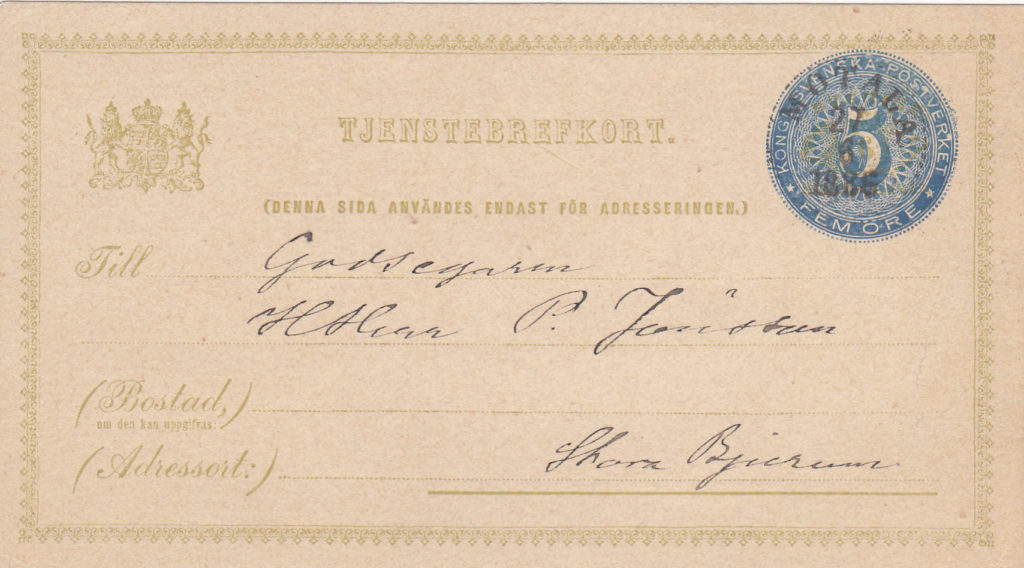 KONGL. SVENSKA POSTVERKET
5
FEM ÖRE
MOTALA
21
1886
TJENSTEBREFKORT.
(DENNA SIDA ANVÄNDES ENDAST FÖR ADRESSERINGEN.)
Till Godsegaren
P. Jönsson
(Bostad,)
om den kan uppgifvas
(Adressort:) Stora Bjerum